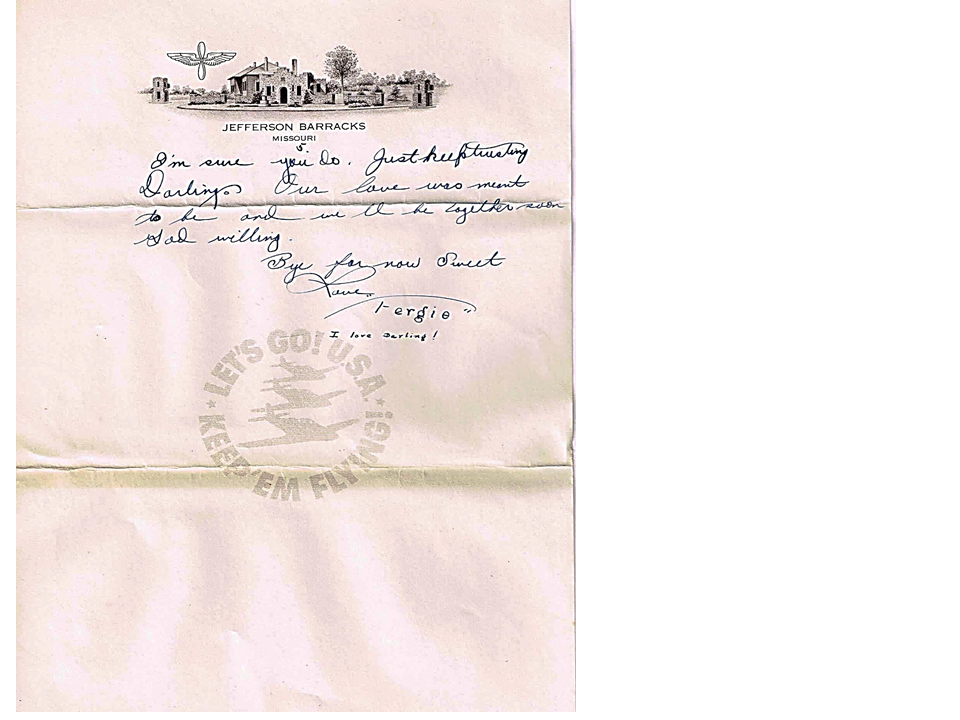 JEFFERSON BARRACKS
MISSOURI
5.
I'm sure you do. Just keep trusting
Darling. Our love was meant
to be and we'll be together soon
God willing.
Bye for now Sweet
Love,
Fergie
I love Darling!
LET'S GO! U.S.A.
KEEP 'EM FLYING!